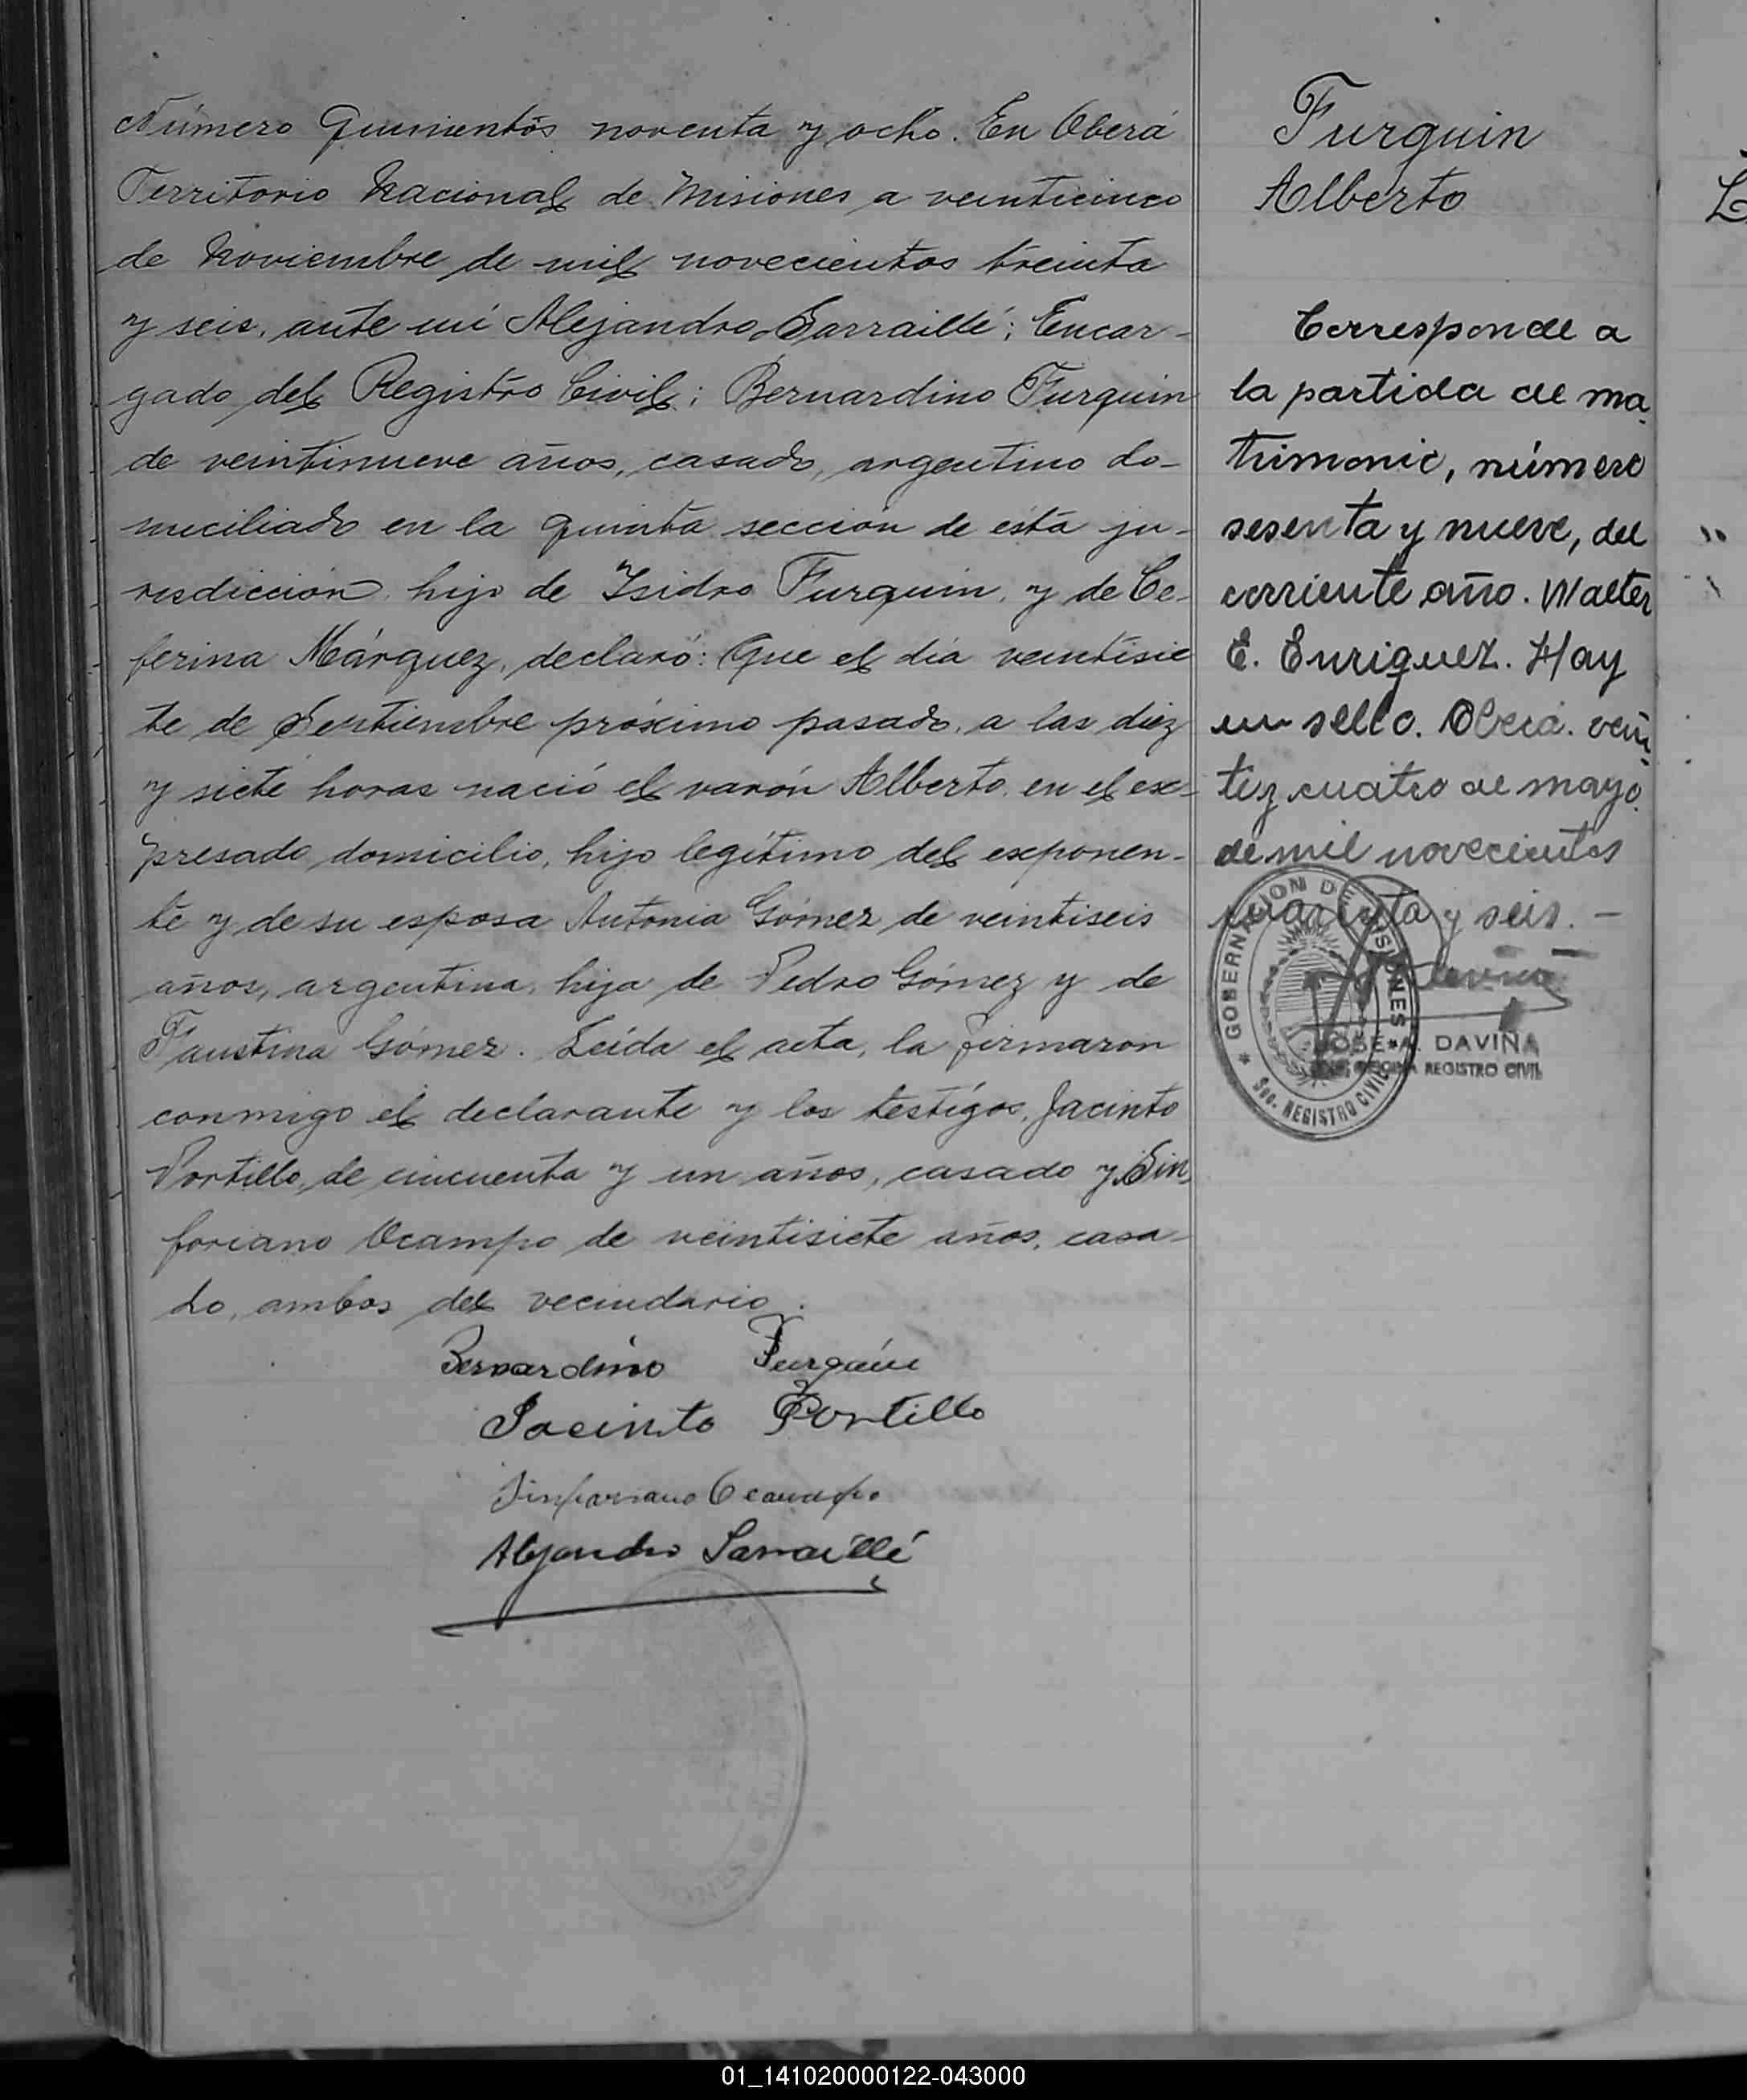 Número Quinientos noventa y ocho. En Oberá
Territorio Nacional de Misiones a veinticinco
de Noviembre de mil novecientos treinta
y seis, ante mí Alejandro Sarraillé; Encar-
gado del Registro Civil; Bernardino Furquin
de veintinueve años, casado, argentino do-
miciliado en la quinta sección de esta ju-
risdicción hijo de Isidro Furquin, y de Ce-
ferina Márquez, declaró: Que el día veintisie
te de Septiembre próximo pasado, a las diez
y siete horas nació el varón Alberto, en el ex-
presado domicilio, hijo legítimo del exponen-
te y de su esposa Antonia Gómez de veintiseis
años, argentina, hija de Pedro Gómez y de
Faustina Gómez. Leída el acta, la firmaron
conmigo el declarante y los testigos, Jacinto
Portillo, de cincuenta y un años, casado y Sin
foriano Ocampo de veintisiete años, casa-
do, ambos del vecindario.
Bernardino Furquin
Jacinto Portillo
Sinforiano Ocampo
Alejandro Sarraillé
Furquin
Alberto
Corresponde a
la partida de ma
trimonio, número
sesenta y nueve, del
corriente año. Walter
E. Enriquez. Hay
un sello. Oberá. vein
te y cuatro de mayo
de mil novecientos
cuarenta y seis. —
GOBERNACION DE MISIONES
Sec. REGISTRO CIVIL
JOSÉ A. DAVIÑA
REGISTRO CIVIL
01_141020000122-043000